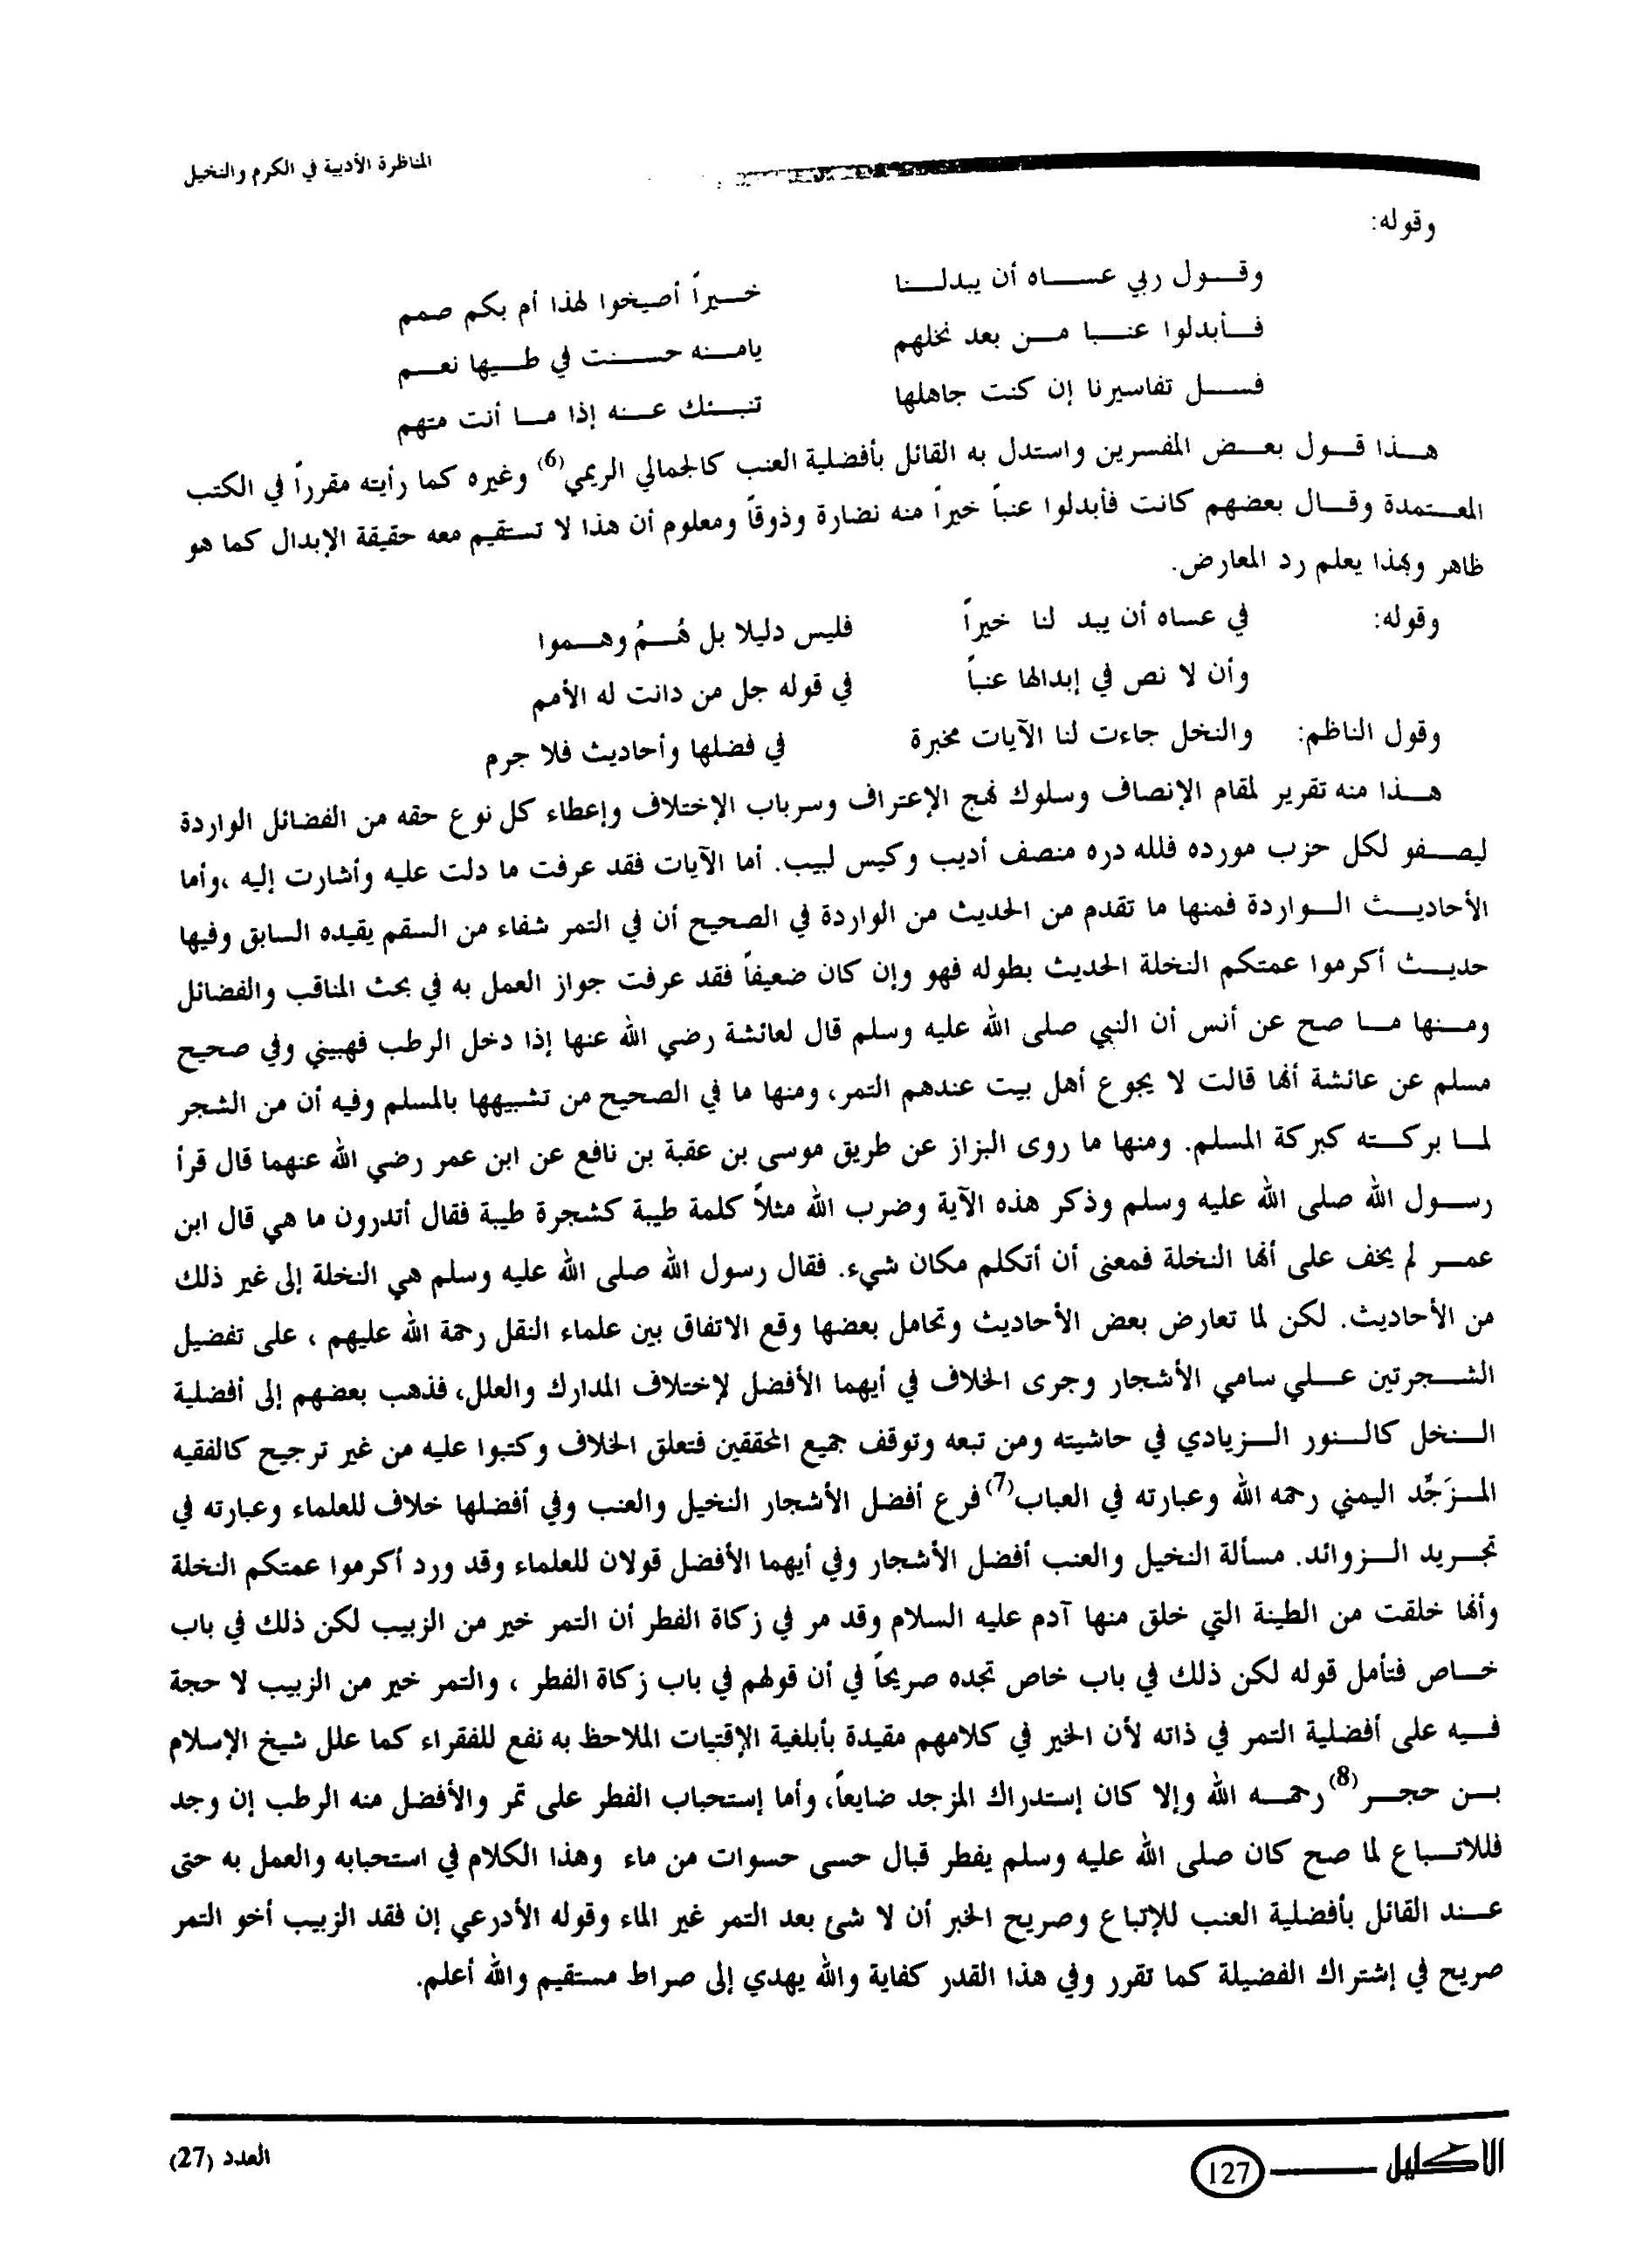 المناظرة الأدبية في الكرم والنخيل
وقوله:
وقول ربي عساه أن يبدلنا خيراً أصيخوا لهذا أم بكم صمم
فأبدلوا عنبا من بعد نخلهم يامنه حسنت في طيها نعم
فسل تفاسيرنا إن كنت جاهلها تنبئك عنه إذا ما أنت متهم
هذا قول بعض المفسرين واستدل به القائل بأفضلية العنب كالجمالي الريمي(6) وغيره كما رأيته مقرراً في الكتب
المعتمدة وقال بعضهم كانت فأبدلوا عنباً خيراً منه نضارة وذوقاً ومعلوم أن هذا لا تستقيم معه حقيقة الإبدال كما هو
ظاهر وبهذا يعلم رد المعارض.
وقوله: في عساه أن يبد لنا خيراً فليس دليلا بل هُمُ وهموا
وأن لا نص في إبدالها عنباً في قوله جل من دانت له الأمم
وقول الناظم: والنخل جاءت لنا الآيات مخبرة في فضلها وأحاديث فلا جرم
هذا منه تقرير لمقام الإنصاف وسلوك نهج الإعتراف وسرباب الإختلاف وإعطاء كل نوع حقه من الفضائل الواردة
ليصفو لكل حزب مورده فلله دره منصف أديب وكيس لبيب. أما الآيات فقد عرفت ما دلت عليه وأشارت إليه ،وأما
الأحاديث الواردة فمنها ما تقدم من الحديث من الواردة في الصحيح أن في التمر شفاء من السقم يقيده السابق وفيها
حديث أكرموا عمتكم النخلة الحديث بطوله فهو وإن كان ضعيفاً فقد عرفت جواز العمل به في بحث المناقب والفضائل
ومنها ما صح عن أنس أن النبي صلى الله عليه وسلم قال لعائشة رضي الله عنها إذا دخل الرطب فهبيني وفي صحيح
مسلم عن عائشة أنها قالت لا يجوع أهل بيت عندهم التمر، ومنها ما في الصحيح من تشبيهها بالمسلم وفيه أن من الشجر
لما بركته كبركة المسلم. ومنها ما روى البزاز عن طريق موسى بن عقبة بن نافع عن ابن عمر رضي الله عنهما قال قرأ
رسول الله صلى الله عليه وسلم وذكر هذه الآية وضرب الله مثلاً كلمة طيبة كشجرة طيبة فقال أتدرون ما هي قال ابن
عمر لم يخف على أنها النخلة فمعنى أن أتكلم مكان شيء. فقال رسول الله صلى الله عليه وسلم هي النخلة إلى غير ذلك
من الأحاديث. لكن لما تعارض بعض الأحاديث وتحامل بعضها وقع الاتفاق بين علماء النقل رحمة الله عليهم ، على تفضيل
الشجرتين علي سامي الأشجار وجرى الخلاف في أيهما الأفضل لإختلاف المدارك والعلل، فذهب بعضهم إلى أفضلية
النخل كالنور الزيادي في حاشيته ومن تبعه وتوقف جميع المحققين فتعلق الخلاف وكتبوا عليه من غير ترجيح كالفقيه
المزَجَّد اليمني رحمه الله وعبارته في العباب(7) فرع أفضل الأشجار النخيل والعنب وفي أفضلها خلاف للعلماء وعبارته في
تجريد الزوائد. مسألة النخيل والعنب أفضل الأشجار وفي أيهما الأفضل قولان للعلماء وقد ورد أكرموا عمتكم النخلة
وأنها خلقت من الطينة التي خلق منها آدم عليه السلام وقد مر في زكاة الفطر أن التمر خير من الزبيب لكن ذلك في باب
خاص فتأمل قوله لكن ذلك في باب خاص تجده صريحاً في أن قولهم في باب زكاة الفطر ، والتمر خير من الزبيب لا حجة
فيه على أفضلية التمر في ذاته لأن الخير في كلامهم مقيدة بأبلغية الإقتيات الملاحظ به نفع للفقراء كما علل شيخ الإسلام
بن حجر(8) رحمه الله وإلا كان إستدراك المزجد ضايعاً، وأما إستحباب الفطر على تمر والأفضل منه الرطب إن وجد
فللاتباع لما صح كان صلى الله عليه وسلم يفطر قبال حسى حسوات من ماء وهذا الكلام في استحبابه والعمل به حتى
عند القائل بأفضلية العنب للإتباع وصريح الخبر أن لا شئ بعد التمر غير الماء وقوله الأدرعي إن فقد الزبيب أخو التمر
صريح في إشتراك الفضيلة كما تقرر وفي هذا القدر كفاية والله يهدي إلى صراط مستقيم والله أعلم.
الاكليل 127 العدد (27)